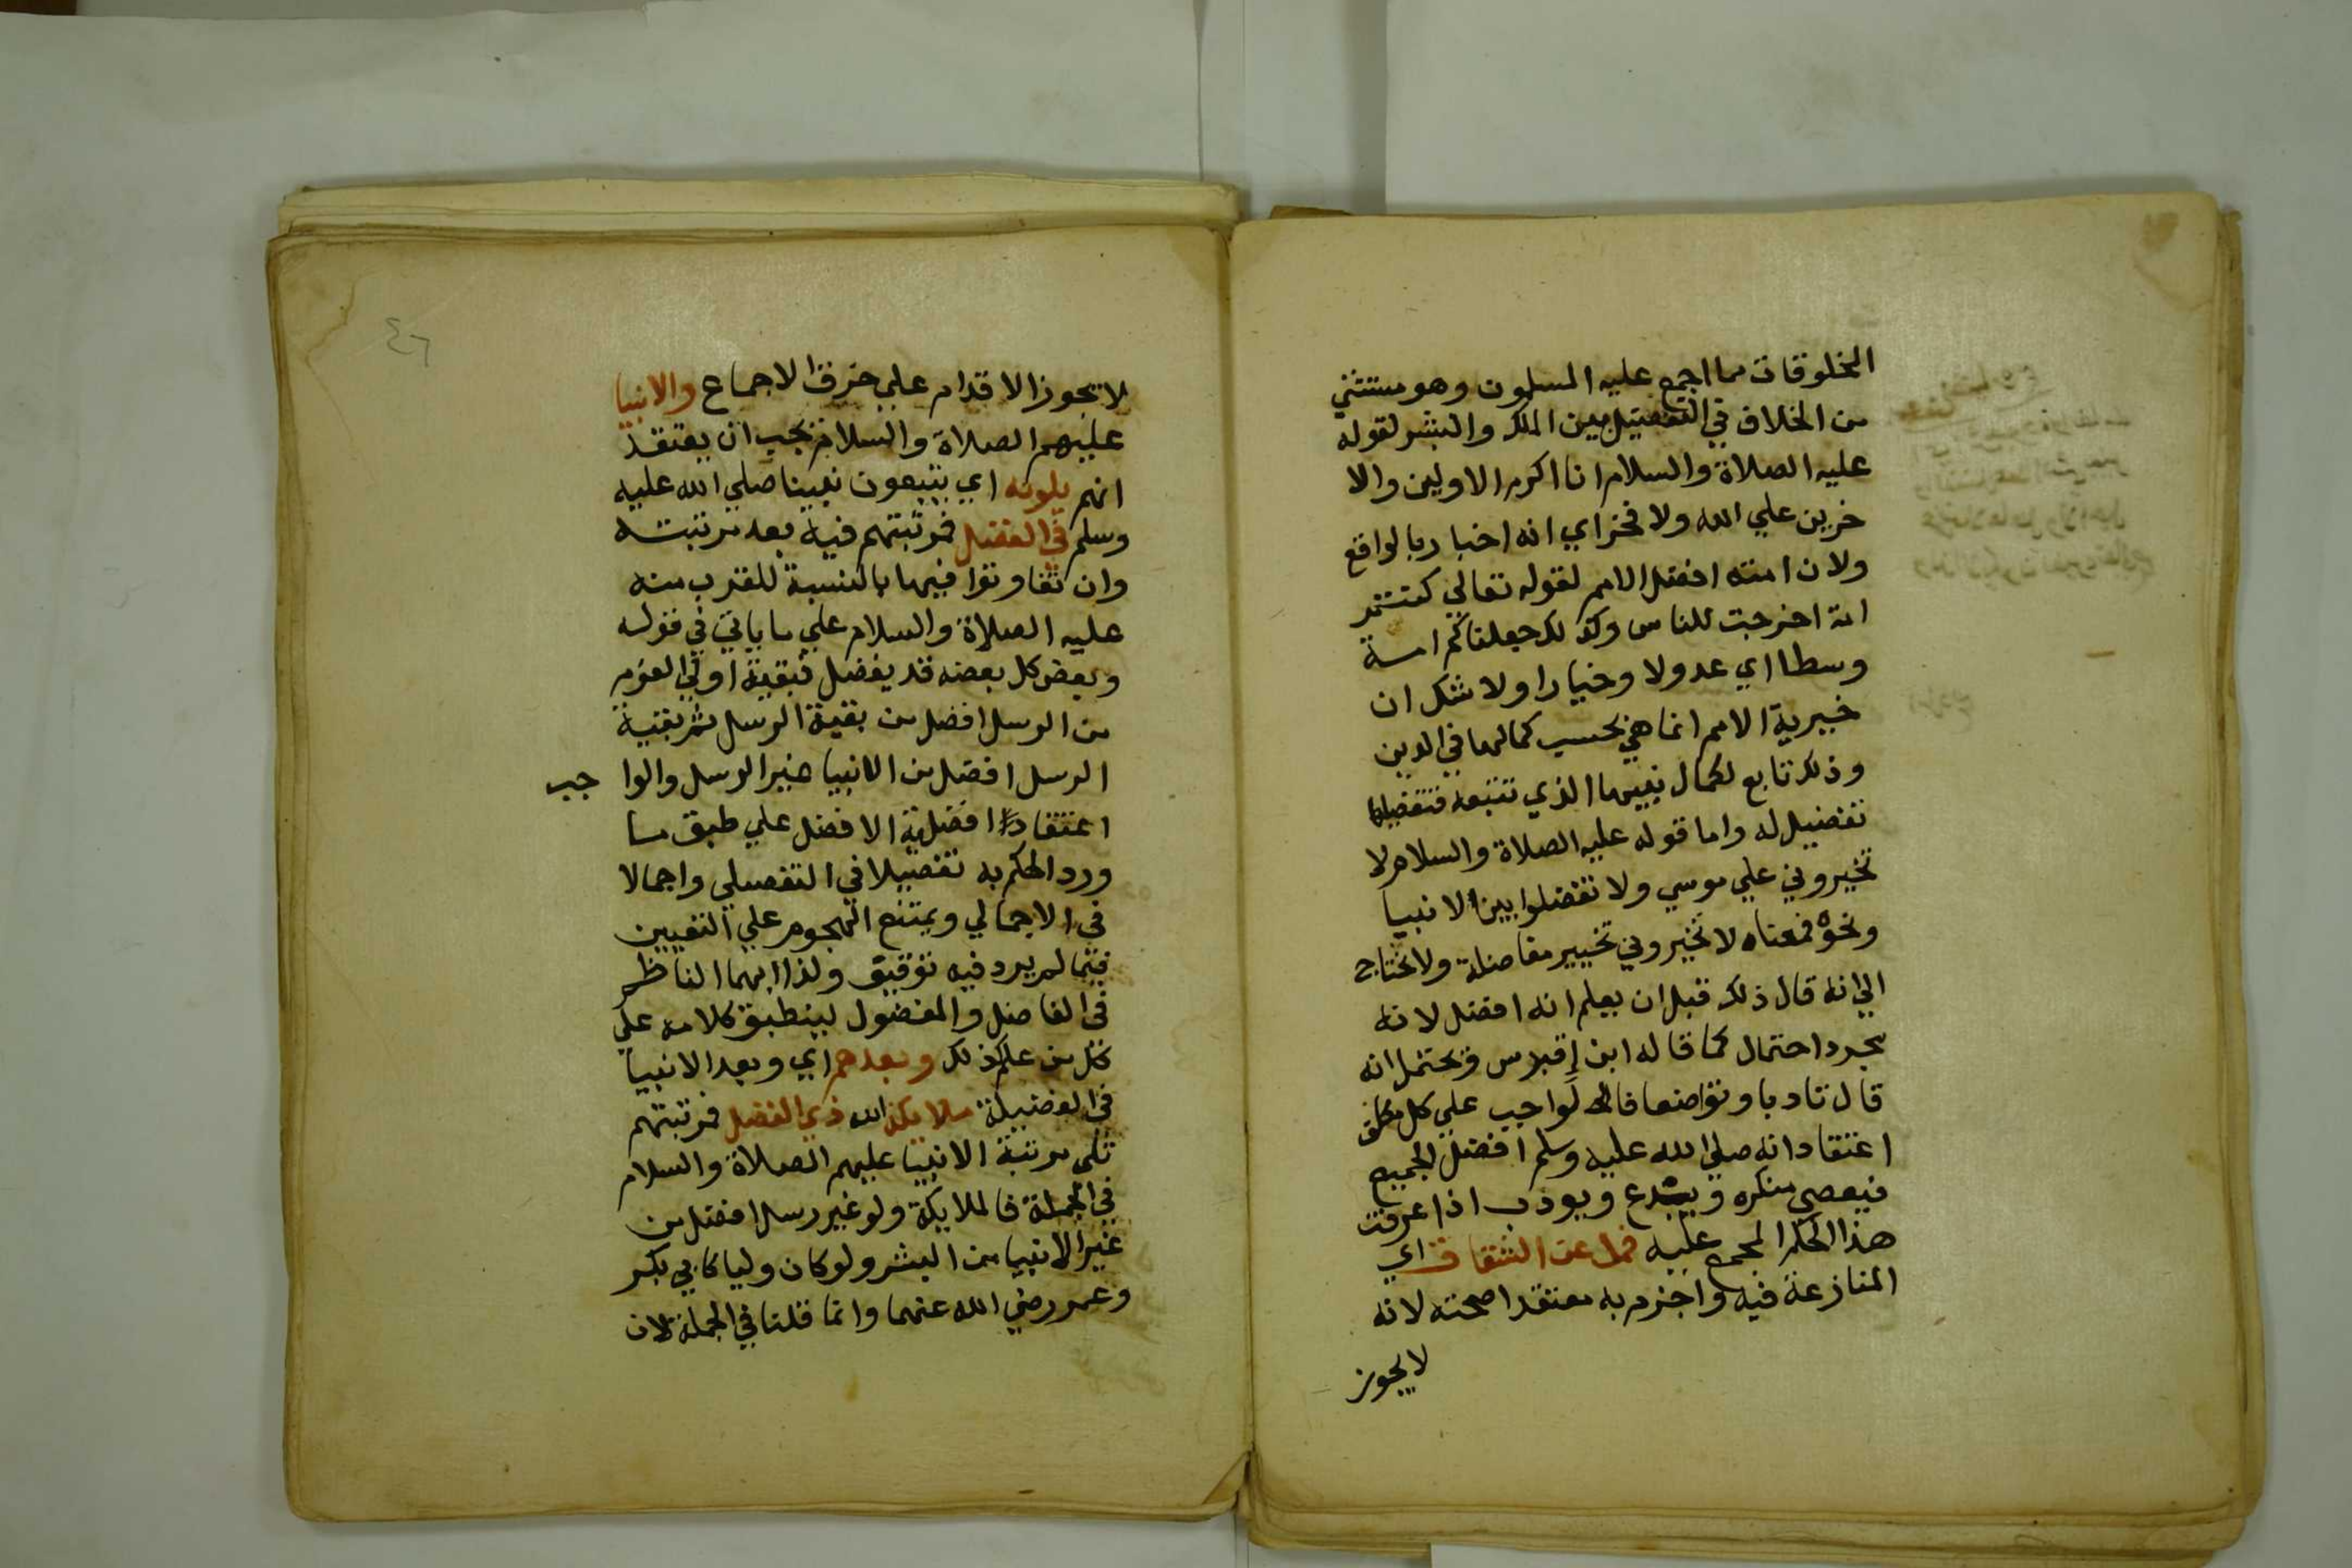 المخلوقات مما اجمع عليه المسلمون وهو مستثني
من الخلاف في التفضيل بين الملك والبشر لقوله
عليه الصلاة والسلام انا اكرم الاولين والا
خرين علي الله ولا فخر اي انه اخبار بالواقع
ولان امته افضل الامم لقوله تعالي كنتم خير
امة اخرجت للناس وكذلك جعلناكم امة
وسطا اي عدولا وخيارا ولا شك ان
خيرية الامم انما هي بحسب كمالها في الدين
وذلك تابع لكمال نبيها الذي تتبعه فتفضيلها
تفضيل له واما قوله عليه الصلاة والسلام لا
تخيروني علي موسي ولا تفضلوا بين الانبيا
ونحوه فمعناه لا تخيروني تخيير مفاضلة ولا يحتاج
الي انه قال ذلك قبل ان يعلم انه افضل لانه
مجرد احتمال كما قاله ابن اقبرس ويحتمل انه
قال تادبا وتواضعا فالواجب علي كل مكلف
اعتقاد انه صلي الله عليه وسلم افضل الجميع
فيعصي منكره ويبدع ويودب اذا عرفت
هذا الحكم المجمع عليه فمل عن الشقاق اي
المنازعة فيه واجزم به معتقدا صحته لانه
لا يجوز
٤٦
لا يجوز الاقدام علي خرق الاجماع والانبيا
عليهم الصلاة والسلام يجب ان يعتقد
انهم يلونه اي يتبعون نبينا صلي الله عليه
وسلم في الفضل فمرتبتهم فيه بعد مرتبته
وان تفاوتوا فيها بالنسبة للقرب منه
عليه الصلاة والسلام علي ما ياتي في قوله
وبعض كل بعضه قد يفضل فبقية اولي العزم
من الرسل افضل من بقية الرسل ثم بقية
الرسل افضل من الانبيا غير الرسل والوا جب
اعتقاد افضلية الافضل علي طبق ما
ورد الحكم به تفصيلا في التفصيلي واجمالا
في الاجمالي ويمتنع الهجوم علي التعيين
فيما لم يرد فيه توقيف ولذا ابهما الناظم
في الفاضل والمفضول لينطبق كلامه علي
كل من علم ذلك وبعدهم اي وبعد الانبيا
في الفضيلة ملائكة الله ذي الفضل فمرتبتهم
تلي مرتبة الانبيا عليهم الصلاة والسلام
في الجملة فالملايكة ولو غير رسل افضل من
غير الانبيا من البشر ولو كان وليا كابي بكر
وعمر رضي الله عنهما وانما قلنا في الجملة لان